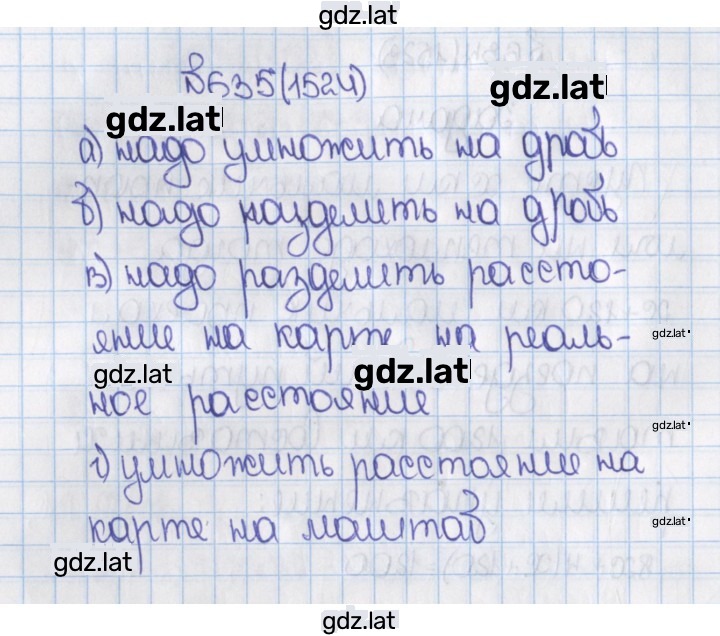 gdz.lat
№635(1524)
gdz.lat
gdz.lat
а) надо умножить на дробь
б) надо разделить на дробь
в) надо разделить рассто-
яние на карте на реаль-
gdz.lat
gdz.lat
gdz.lat
ное расстояние
gdz.lat
г) умножить расстояние на
карте на маштаб
gdz.lat
gdz.lat
gdz.lat